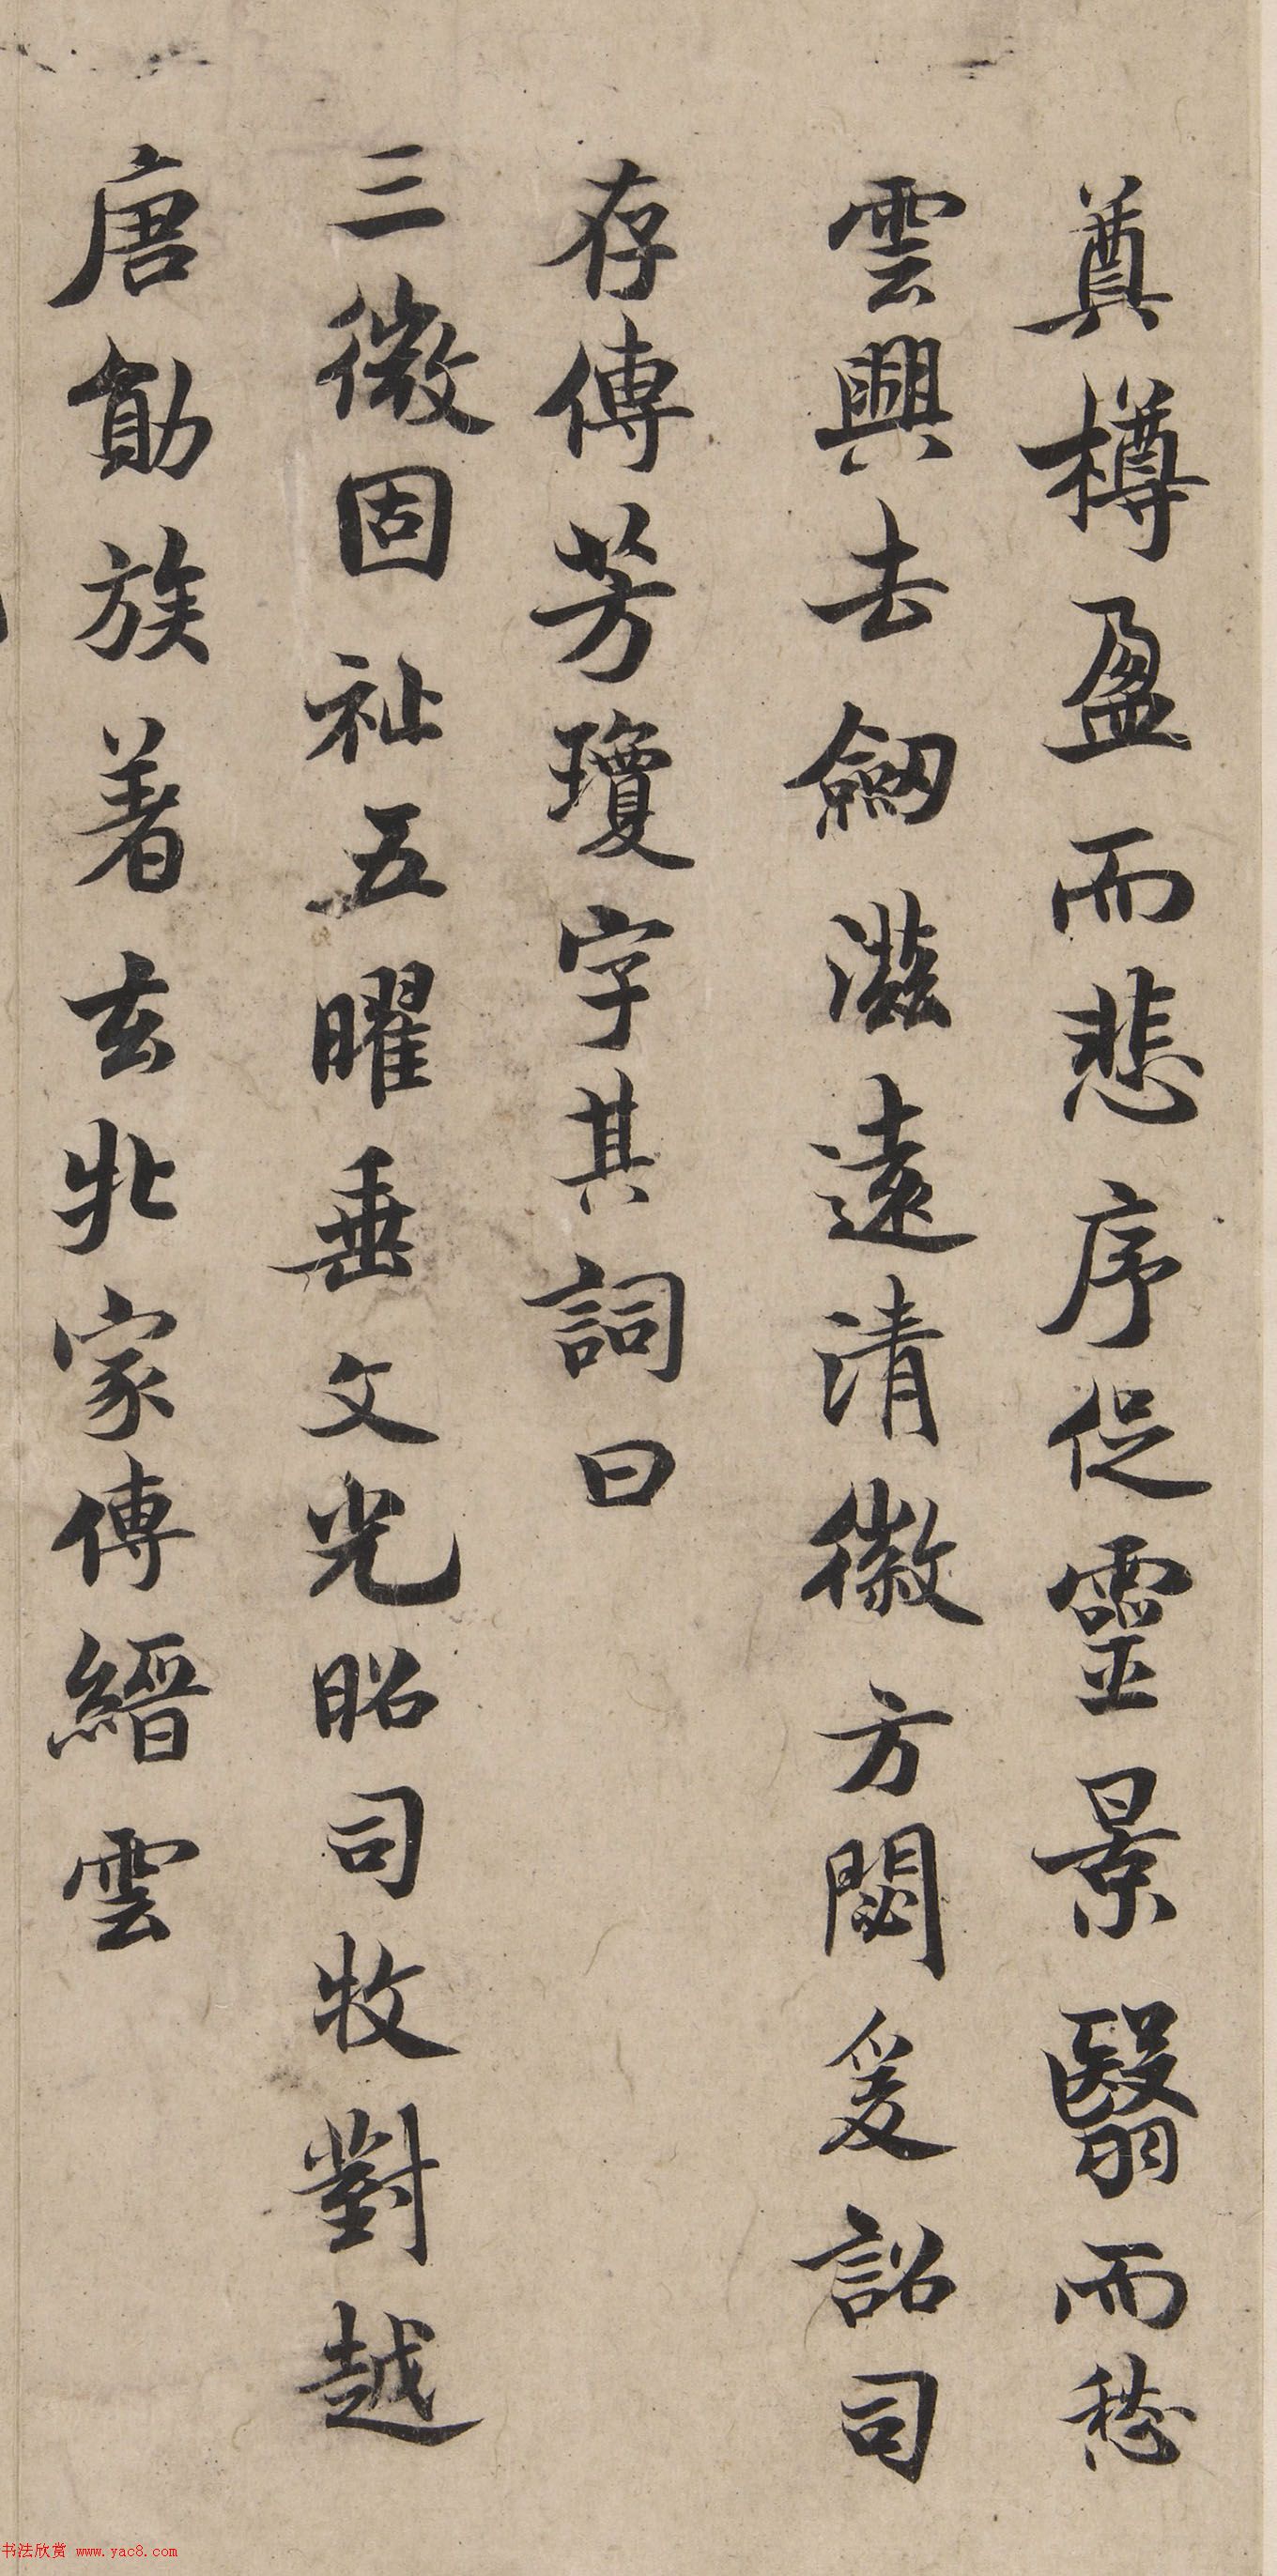 奠樽盈而悲序促靈景翳而愁
雲興去劔滋遠清徽方閟爰詔司
存傳芳瓊字其詞曰
三微固祉五曜垂文光昭司牧對越
唐勛族著玄牝家傳縉雲
书法欣赏 www.yac8.com